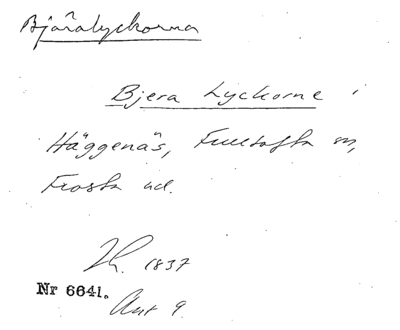 Bjäralyckorna
Bjera Lyckorne i
Häggenäs, Fulltofta sn,
Frosta hd.
Lh. 1837
Nr 6641.
Akt 9